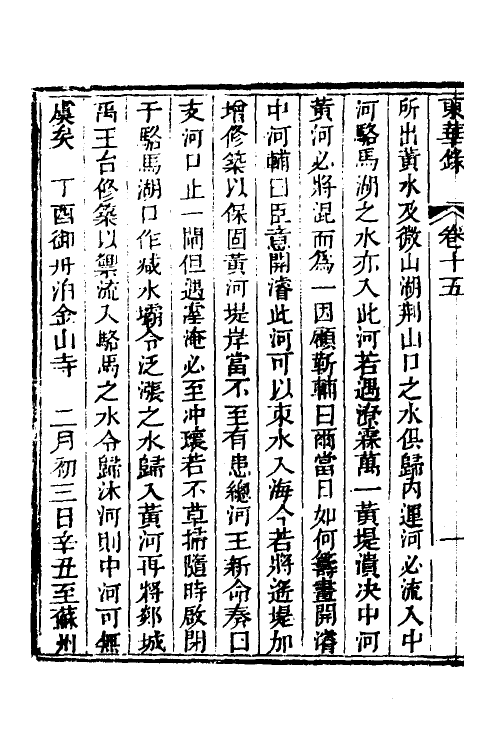 東華錄 卷十五 一
所出黃水及微山湖荆山口之水俱歸內運河必流入中
河駱馬湖之水亦入此河若遇潦霖萬一黃堤潰决中河
黃河必將混而為一因顧靳輔曰爾當日如何籌畫開濬
中河輔曰臣意開濬此河可以束水入海今若將遙堤加
增修築以保固黃河堤岸當不至有患總河王新命奏曰
支河口止一閘但遇淹必至冲壞若不草掃隨時啟閉
于駱馬湖口作減水壩令泛漲之水歸入黃河再將郯城
禹王台修築以禦流入駱馬之水令歸沐河則中河可無
虞矣 丁酉御舟泊金山寺 二月初三日辛丑至蘇州